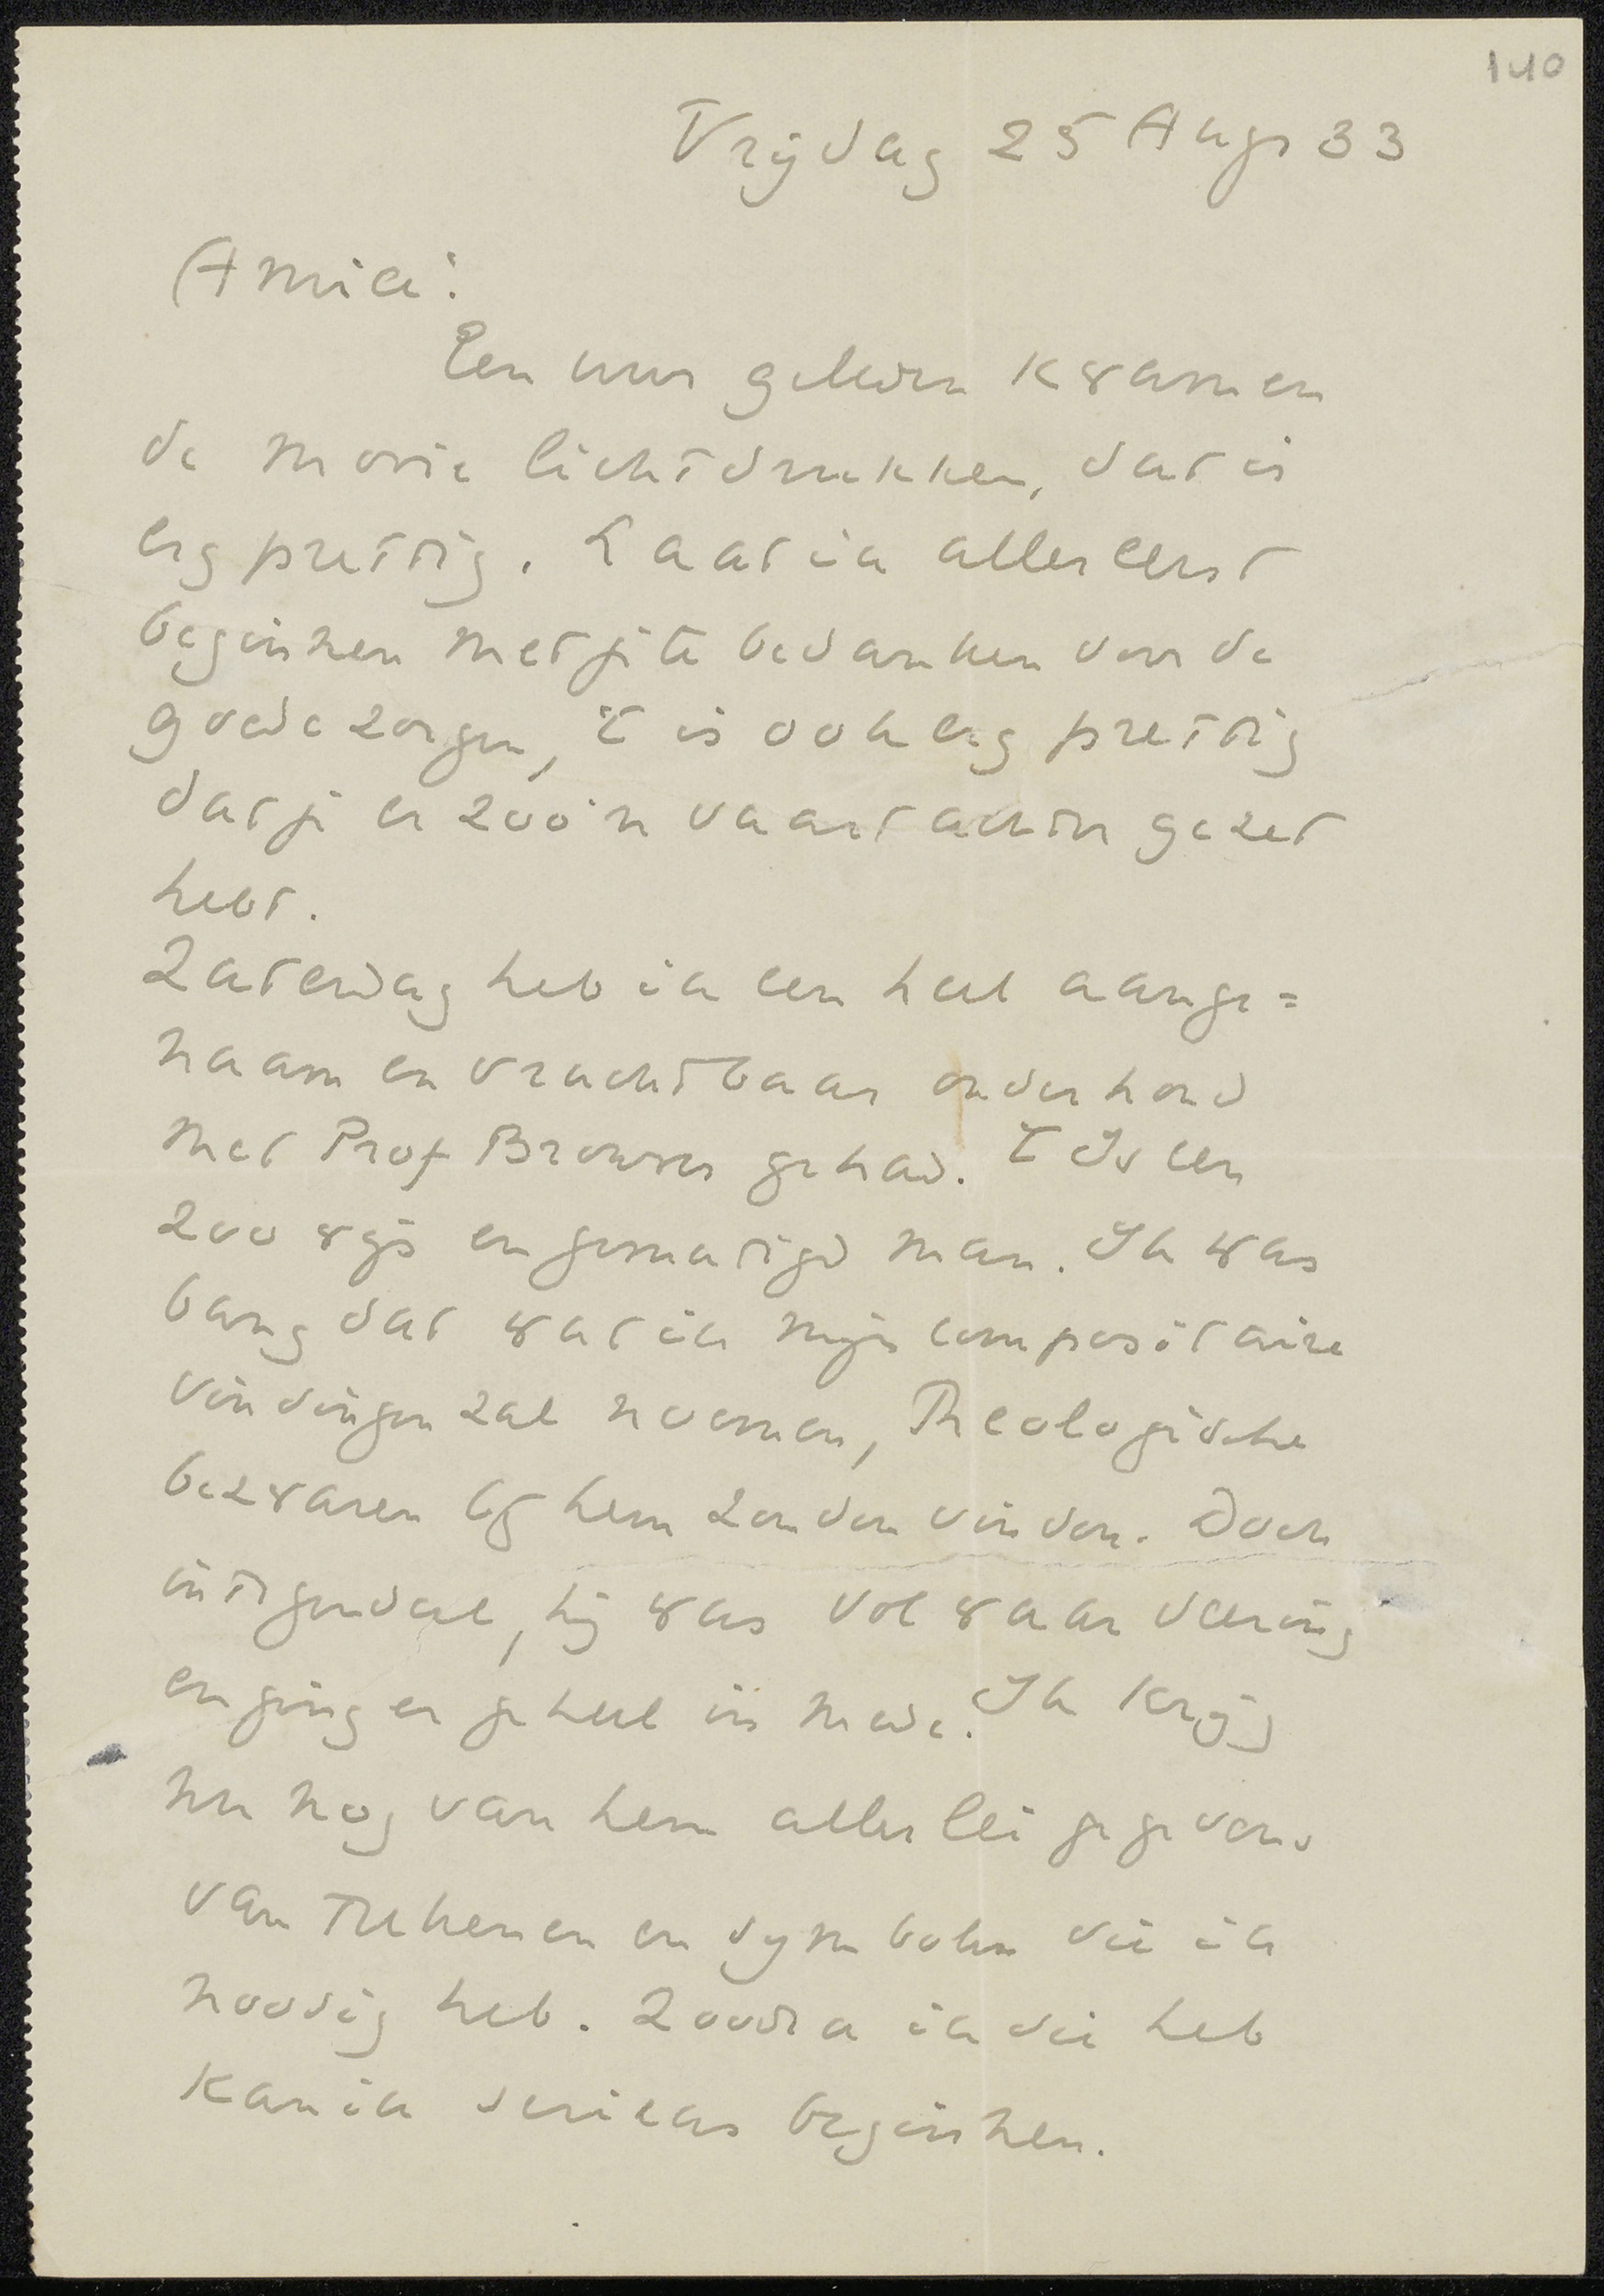 140
Vrijdag 25 Aug. 33
Amice:
Een uur geleden kwamen
de mooie lichtdrukken, dat is
erg prettig. Laat ik allereerst
beginnen met je te bedanken voor de
goede zorgen, 't is ook erg prettig
dat je er zoo'n vaart achter gezet
hebt.
Zaterdag heb ik een heel aange=
naam en vruchtbaar onderhoud
met Prof Brouwer gehad. 't Is een
zoo wijs en gematigd man. Ik was
bang dat wat ik mijn compositaire
vindingen zal noemen, Theologische
bezwaren bij hem zouden vinden. Doch
integendeel, hij was vol waardeering
en ging er geheel in mede. Ik krijg
nu nog van hem allerlei gegevens
van teekenen en symbolen die ik
noodig heb. Zoodra ik die heb
kan ik serieus beginnen.